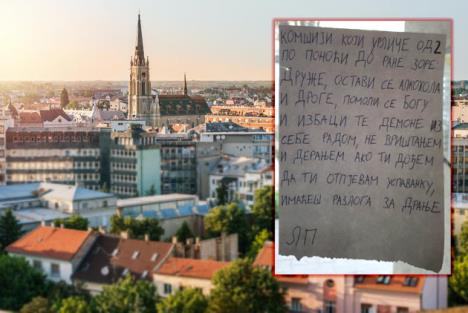 КОМШИЈИ КОЈИ УРЛИЧЕ ОД 2
ПО ПОНОЋИ ДО РАНЕ ЗОРЕ
ДРУЖЕ, ОСТАВИ СЕ АЛКОХОЛА
И ДРОГЕ, ПОМОЛИ СЕ БОГУ
И ИЗБАЦИ ТЕ ДЕМОНЕ ИЗ
СЕБЕ РАДОМ, НЕ ВРИШТАЊЕМ
И ДЕРАЊЕМ АКО ТИ ДОЂЕМ
ДА ТИ ОТПЈЕВАМ УСПАВАНКУ,
ИМАЋЕШ РАЗЛОГА ЗА ДРАЊЕ
ЉП